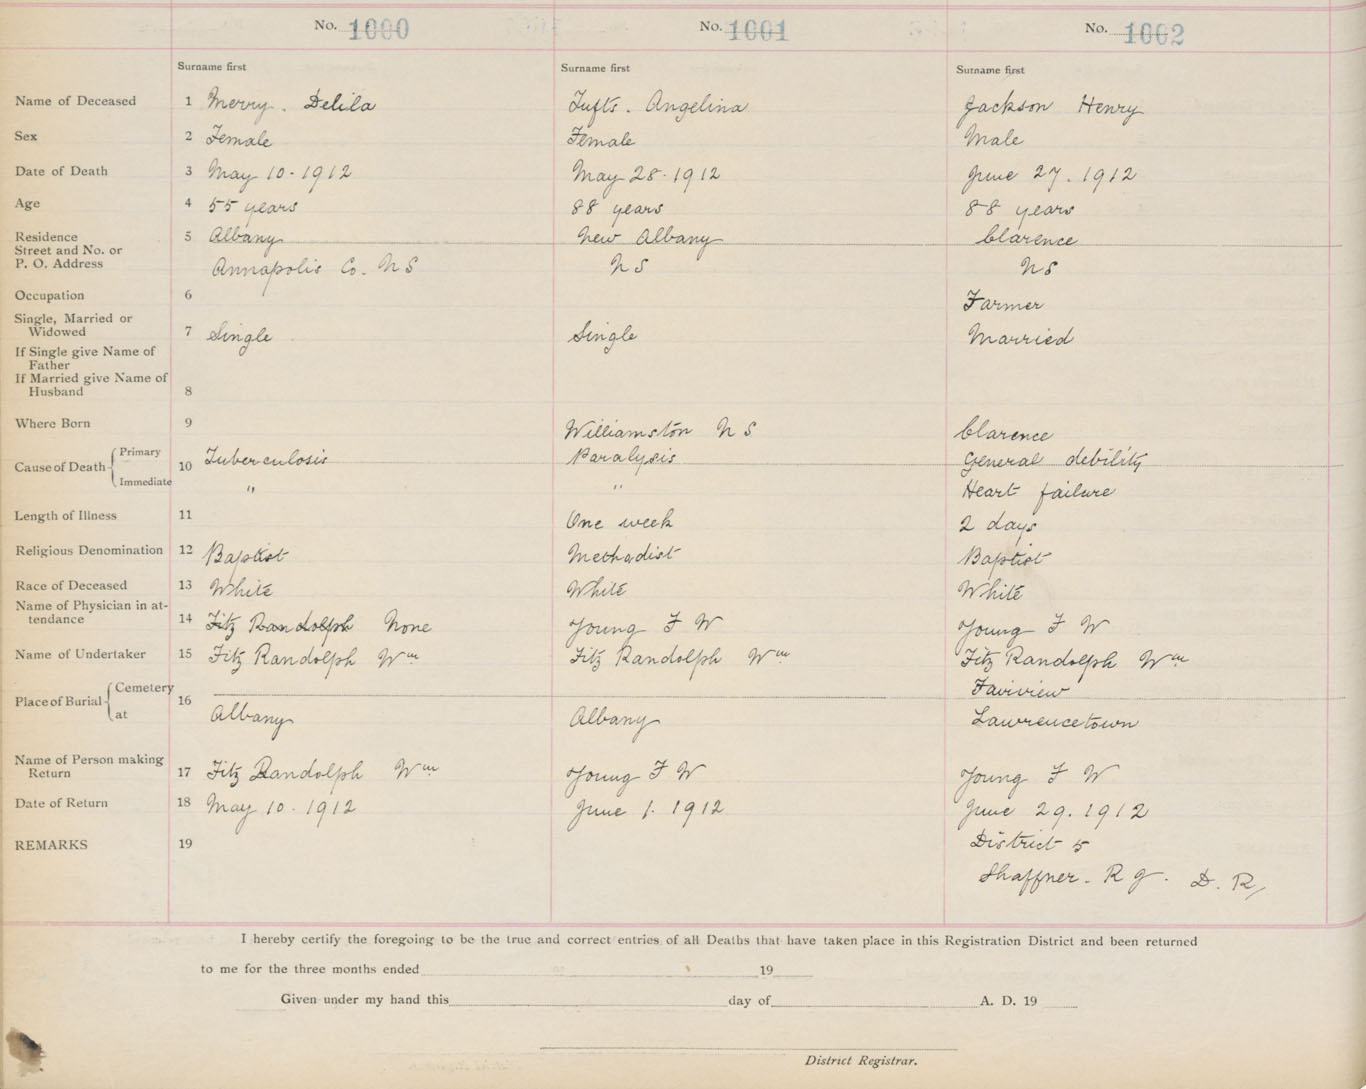 No. 1000 No. 1001 No. 1002
Surname first Surname first Surname first
Name of Deceased 1 Merry. Delila Tufts. Angelina Jackson Henry
Sex 2 Female Female Male
Date of Death 3 May 10-1912 May 28-1912 June 27. 1912
Age 4 55 years 88 years 88 years
Residence 5 Albany New Albany Clarence
Street and No. or
P. O. Address Annapolis Co. N S N S N S
Occupation 6 Farmer
Single, Married or
Widowed 7 Single Single Married
If Single give Name of
Father
If Married give Name of
Husband 8
Where Born 9 Williamston N S Clarence
Cause of Death Primary 10 Tuberculosis Paralysis General debility
Immediate " " Heart failure
Length of Illness 11 One week 2 days
Religious Denomination 12 Baptist Methodist Baptist
Race of Deceased 13 White White White
Name of Physician in at-
tendance 14 Fitz Randolph None Young F W Young F W
Name of Undertaker 15 Fitz Randolph Wm Fitz Randolph Wm Fitz Randolph Wm
Place of Burial Cemetery 16 Fairview
at Albany Albany Lawrencetown
Name of Person making
Return 17 Fitz Randolph Wm Young F W Young F W
Date of Return 18 May 10-1912 June 1. 1912 June 29. 1912
REMARKS 19 District 5
Shaffner. R J. D. R,
I hereby certify the foregoing to be the true and correct entries of all Deaths that have taken place in this Registration District and been returned
to me for the three months ended 19
Given under my hand this day of A. D. 19
District Registrar.